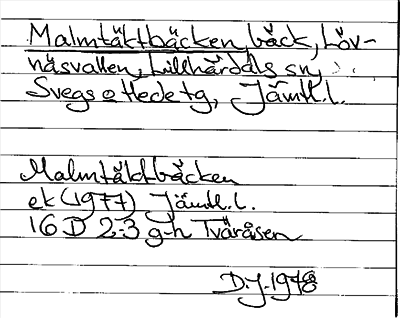 Malmtäktbäcken, bäck, Löv-
näsvallen, Lillhärdals sn,
Svegs o Hede tg, Jämtl. l.
Malmtäktbäcken
ek (1977) Jämtl. l.
16 D 2-3 g-h Tväråsen
D.J. 1978